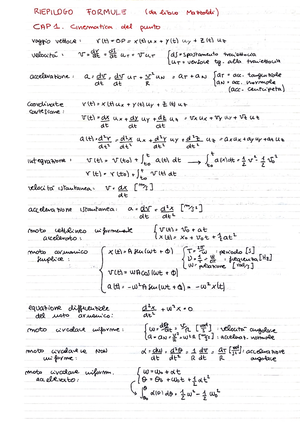 RIEPILOGO FORMULE (da libro Mazzoldi)
CAP 1. Cinematica del punto
raggio vettore: r(t) = OP = x(t) ux + y(t) uy + z(t) uz
velocità: v = dr/dt = ds/dt uT = v uT { ds = spostamento traiettoria
uT = versore tg. alla traiettoria
accelerazione: a = dv/dt = dv/dt uT + v²/R uN = aT + aN { aT = acc. tangenziale
aN = acc. normale
(acc. centripeta)
coordinate cartesiane: r(t) = x(t) ux + y(t) uy + z(t) uz
v(t) = dx/dt ux + dy/dt uy + dz/dt uz = vx ux + vy uy + vz uz
a(t) = d²r/dt² = d²x/dt² ux + d²y/dt² uy + d²z/dt² uz = ax ux + ay uy + az uz
integrazione: v(t) = v(t0) + ∫ a(t) dt
r(t) = r(t0) + ∫ v(t) dt
velocità istantanea: v = dx/dt [m/s]
accelerazione istantanea: a = dv/dt = d²x/dt² [m/s²]
moto rettilineo uniformemente accelerato: { v(t) = v0 + at
x(t) = x0 + v0t + ½at²
moto armonico semplice: { x(t) = A sin(ωt + Φ)
T = 2π/ω : periodo [s]
: frequenza [Hz]
ω = pulsazione
v(t) = ωA cos(ωt + Φ)
a(t) = -ω²A sin(ωt + Φ) = -ω² x(t)
equazione differenziale del moto armonico: d²x/dt² + ω²x = 0
moto circolare uniforme: { ω = dθ/dt = v/R [rad/s] : velocità angolare
a = aN = v²/R = ω²R [m/s²] : acceleraz. normale
moto circolare non uniforme: α = dω/dt = d²θ/dt² = 1/R dv/dt = aT/R [rad/s²] : accelerazione angolare
moto circolare uniform. accelerato: { ω = ω0 + αt
θ = θ0 + ω0t + ½αt²
∫ α(θ) dθ = ½ω² - ½ω0²